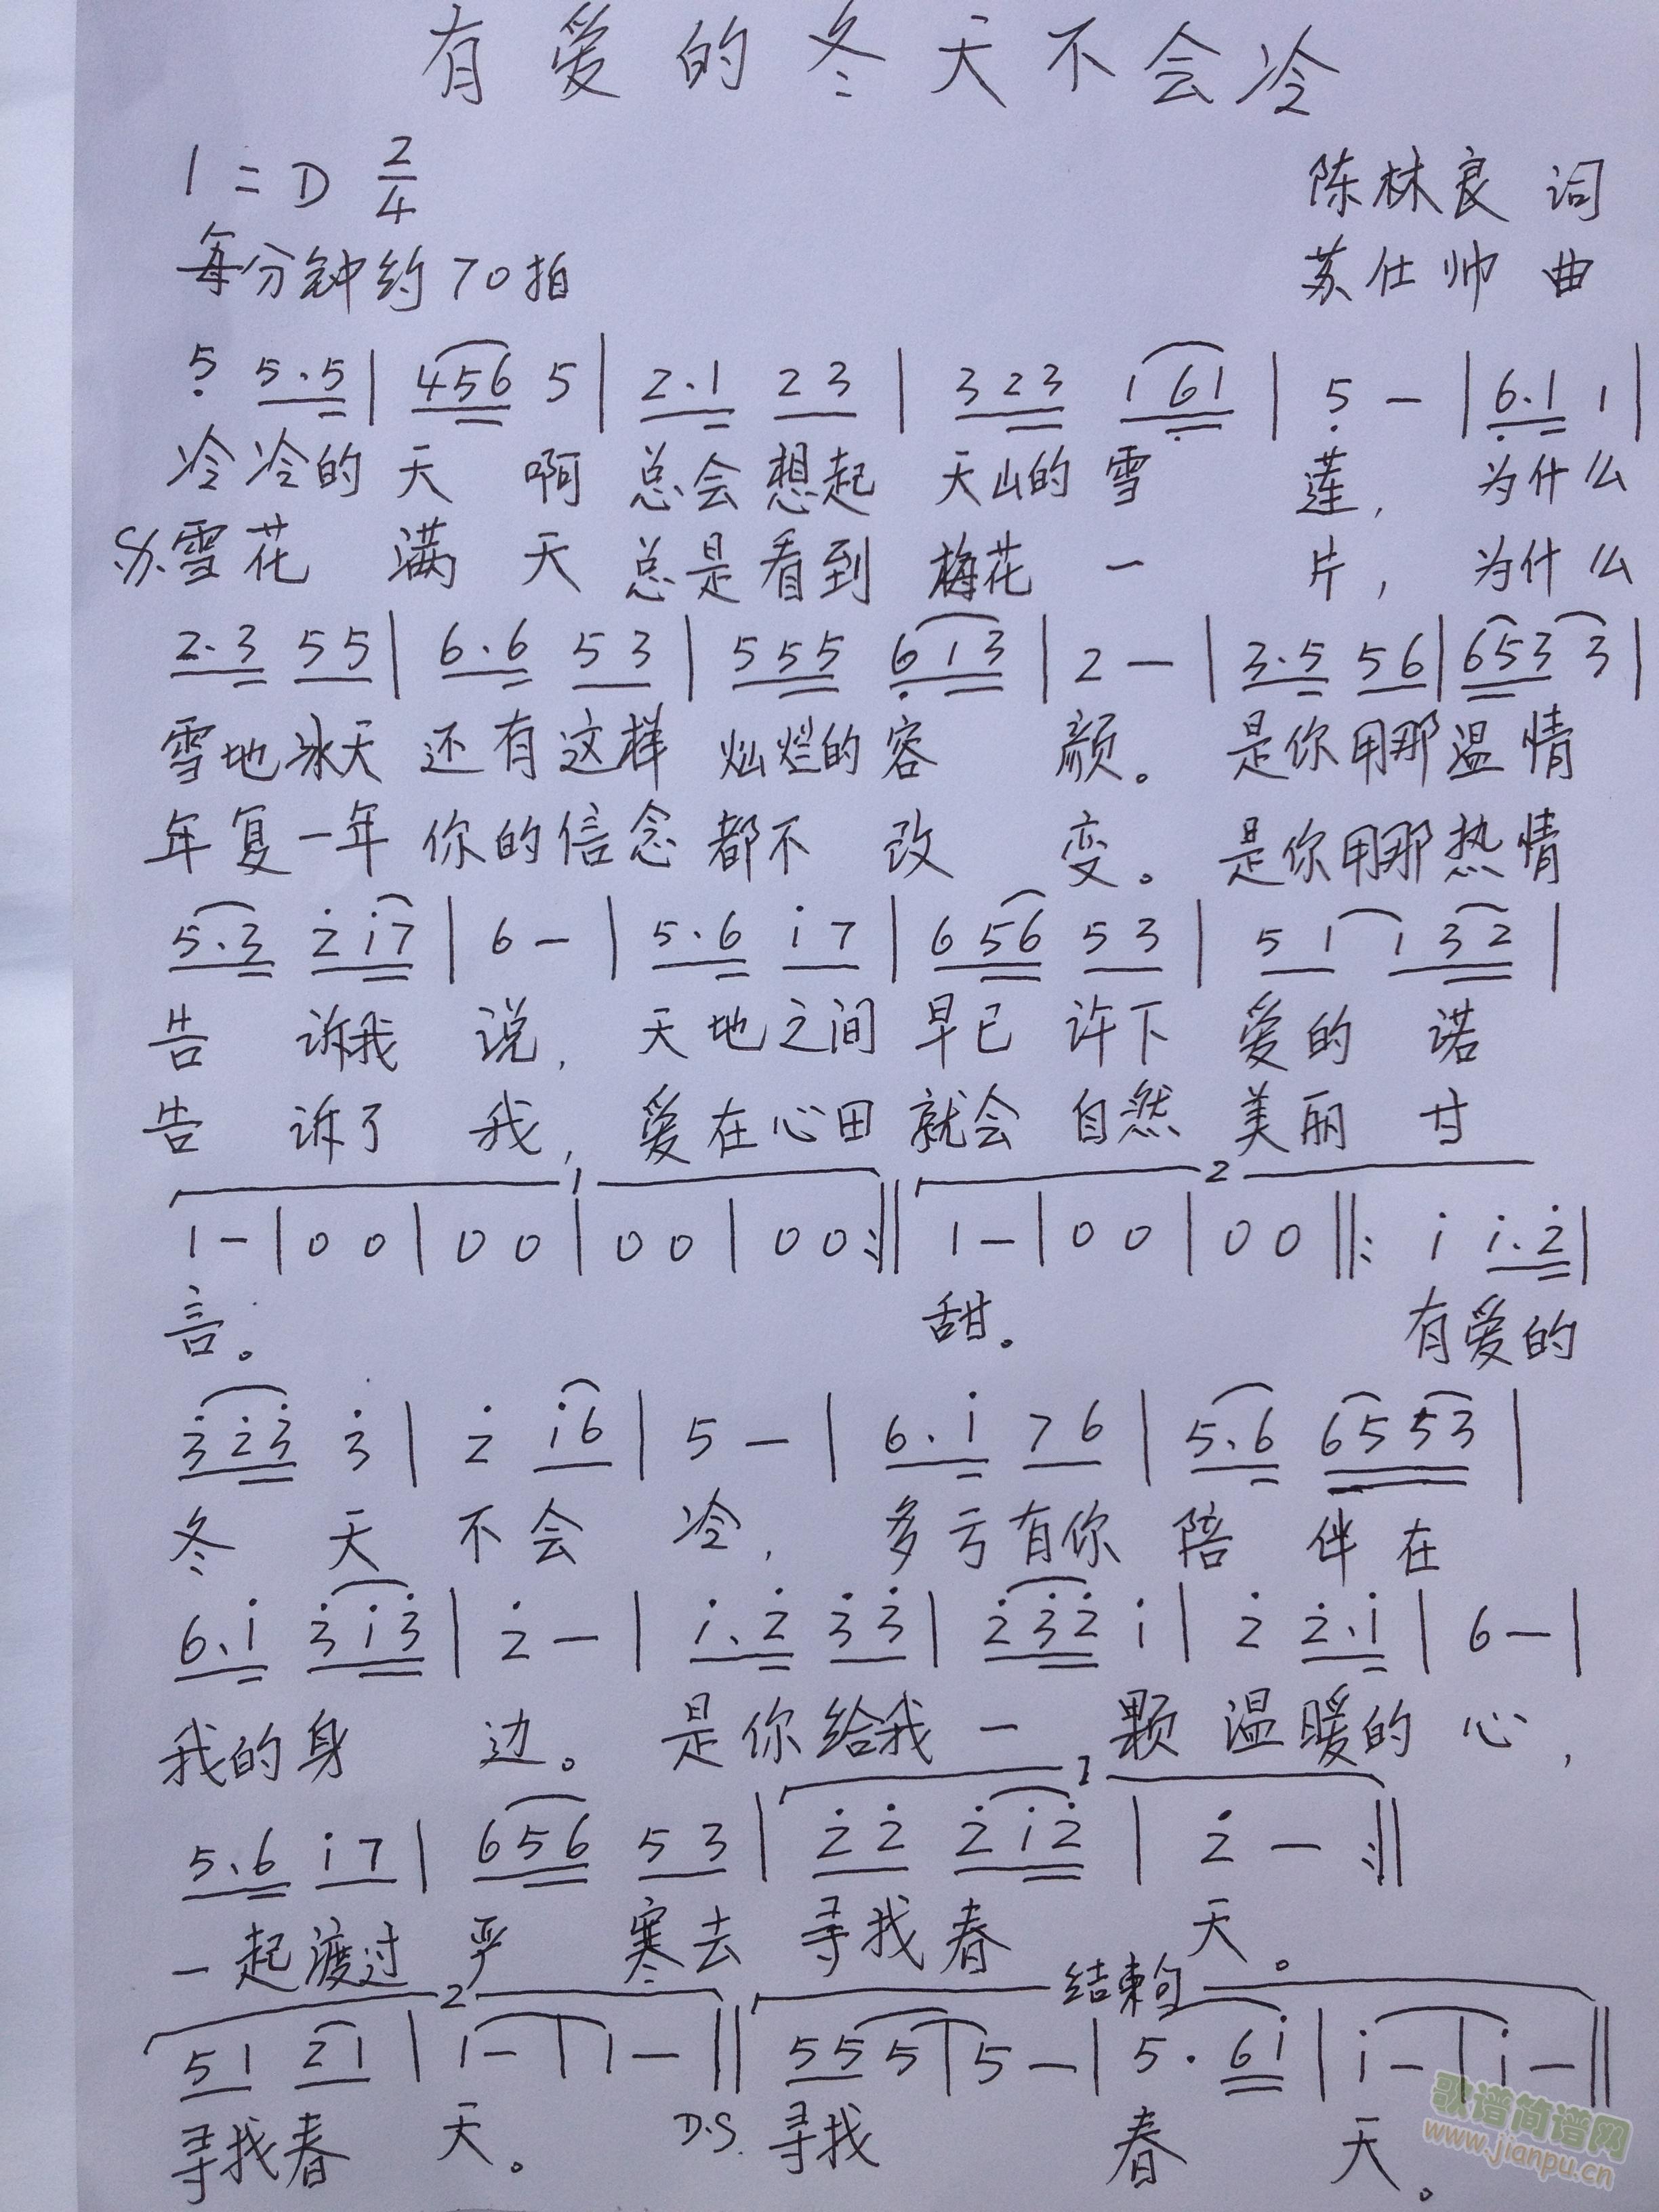 有爱的冬天不会冷
1=D 2/4 陈林良 词
每分钟约70拍 苏仕帅 曲
5̣ 5.5 | 456 5 | 2.1 23 | 323 16̣1 | 5̣ - | 6̣.1 1 |
冷冷的天 啊 总会想起 天山的雪 莲, 为什么
𝄋 雪花 满 天 总是看到 梅花 一 片, 为什么
2.3 55 | 6.6 53 | 555 6̣13 | 2 - | 3.5 56 | 653 3 |
雪地冰天 还有这样 灿烂的容 颜。 是你用那温情
年复一年 你的信念 都不 改 变。 是你用那热情
5.3 2̇1̇7 | 6 - | 5.6 1̇7 | 656 53 | 51 132 |
告 诉我 说, 天地之间 早已 许下 爱的 诺
告 诉了 我, 爱在心田 就会 自然 美丽 甘
1 2
1 - | 0 0 | 0 0 | 0 0 | 0 0 :|| 1 - | 0 0 | 0 0 ||: 1̇ 1̇.2̇ |
言。 甜。 有爱的
3̇2̇3̇ 3̇ | 2̇ 1̇6 | 5 - | 6.1̇ 76 | 5.6 6553 |
冬 天 不会 冷, 多亏有你 陪 伴在
6.1̇ 3̇1̇3̇ | 2̇ - | 1̇.2̇ 3̇3̇ | 2̇3̇2̇ 1̇ | 2̇ 2̇.1̇ | 6 - |
我的身 边。 是你给我 一 颗 温暖的 心,
1
5.6 1̇7 | 656 53 | 2̇2̇ 2̇1̇2̇ | 2̇ - :||
一起渡过 严 寒去 寻找春 天。
2 结束句
51 21 | 1 - | 1 - || 55 5 | 5 - | 5. 61̇ | 1̇ - | 1̇ - ||
寻找春 天。 D.S. 寻找 春 天。
歌谱简谱网
www.jianpu.cn